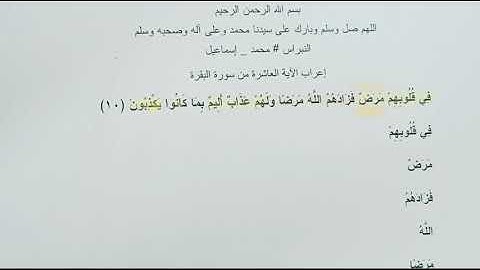 بسم الله الرحمن الرحيم
اللهم صل وسلم وبارك على سيدنا محمد وعلى آله وصحبه وسلم
النبراس # محمد _ إسماعيل
إعراب الآية العاشرة من سورة البقرة
فِي قُلُوبِهِمْ مَرَضٌ فَزَادَهُمُ اللَّهُ مَرَضًا وَلَهُمْ عَذَابٌ أَلِيمٌ بِمَا كَانُوا يَكْذِبُونَ (١٠)
فِي قُلُوبِهِمْ
مَرَضٌ
فَزَادَهُمُ
اللَّهُ
مَرَضًا